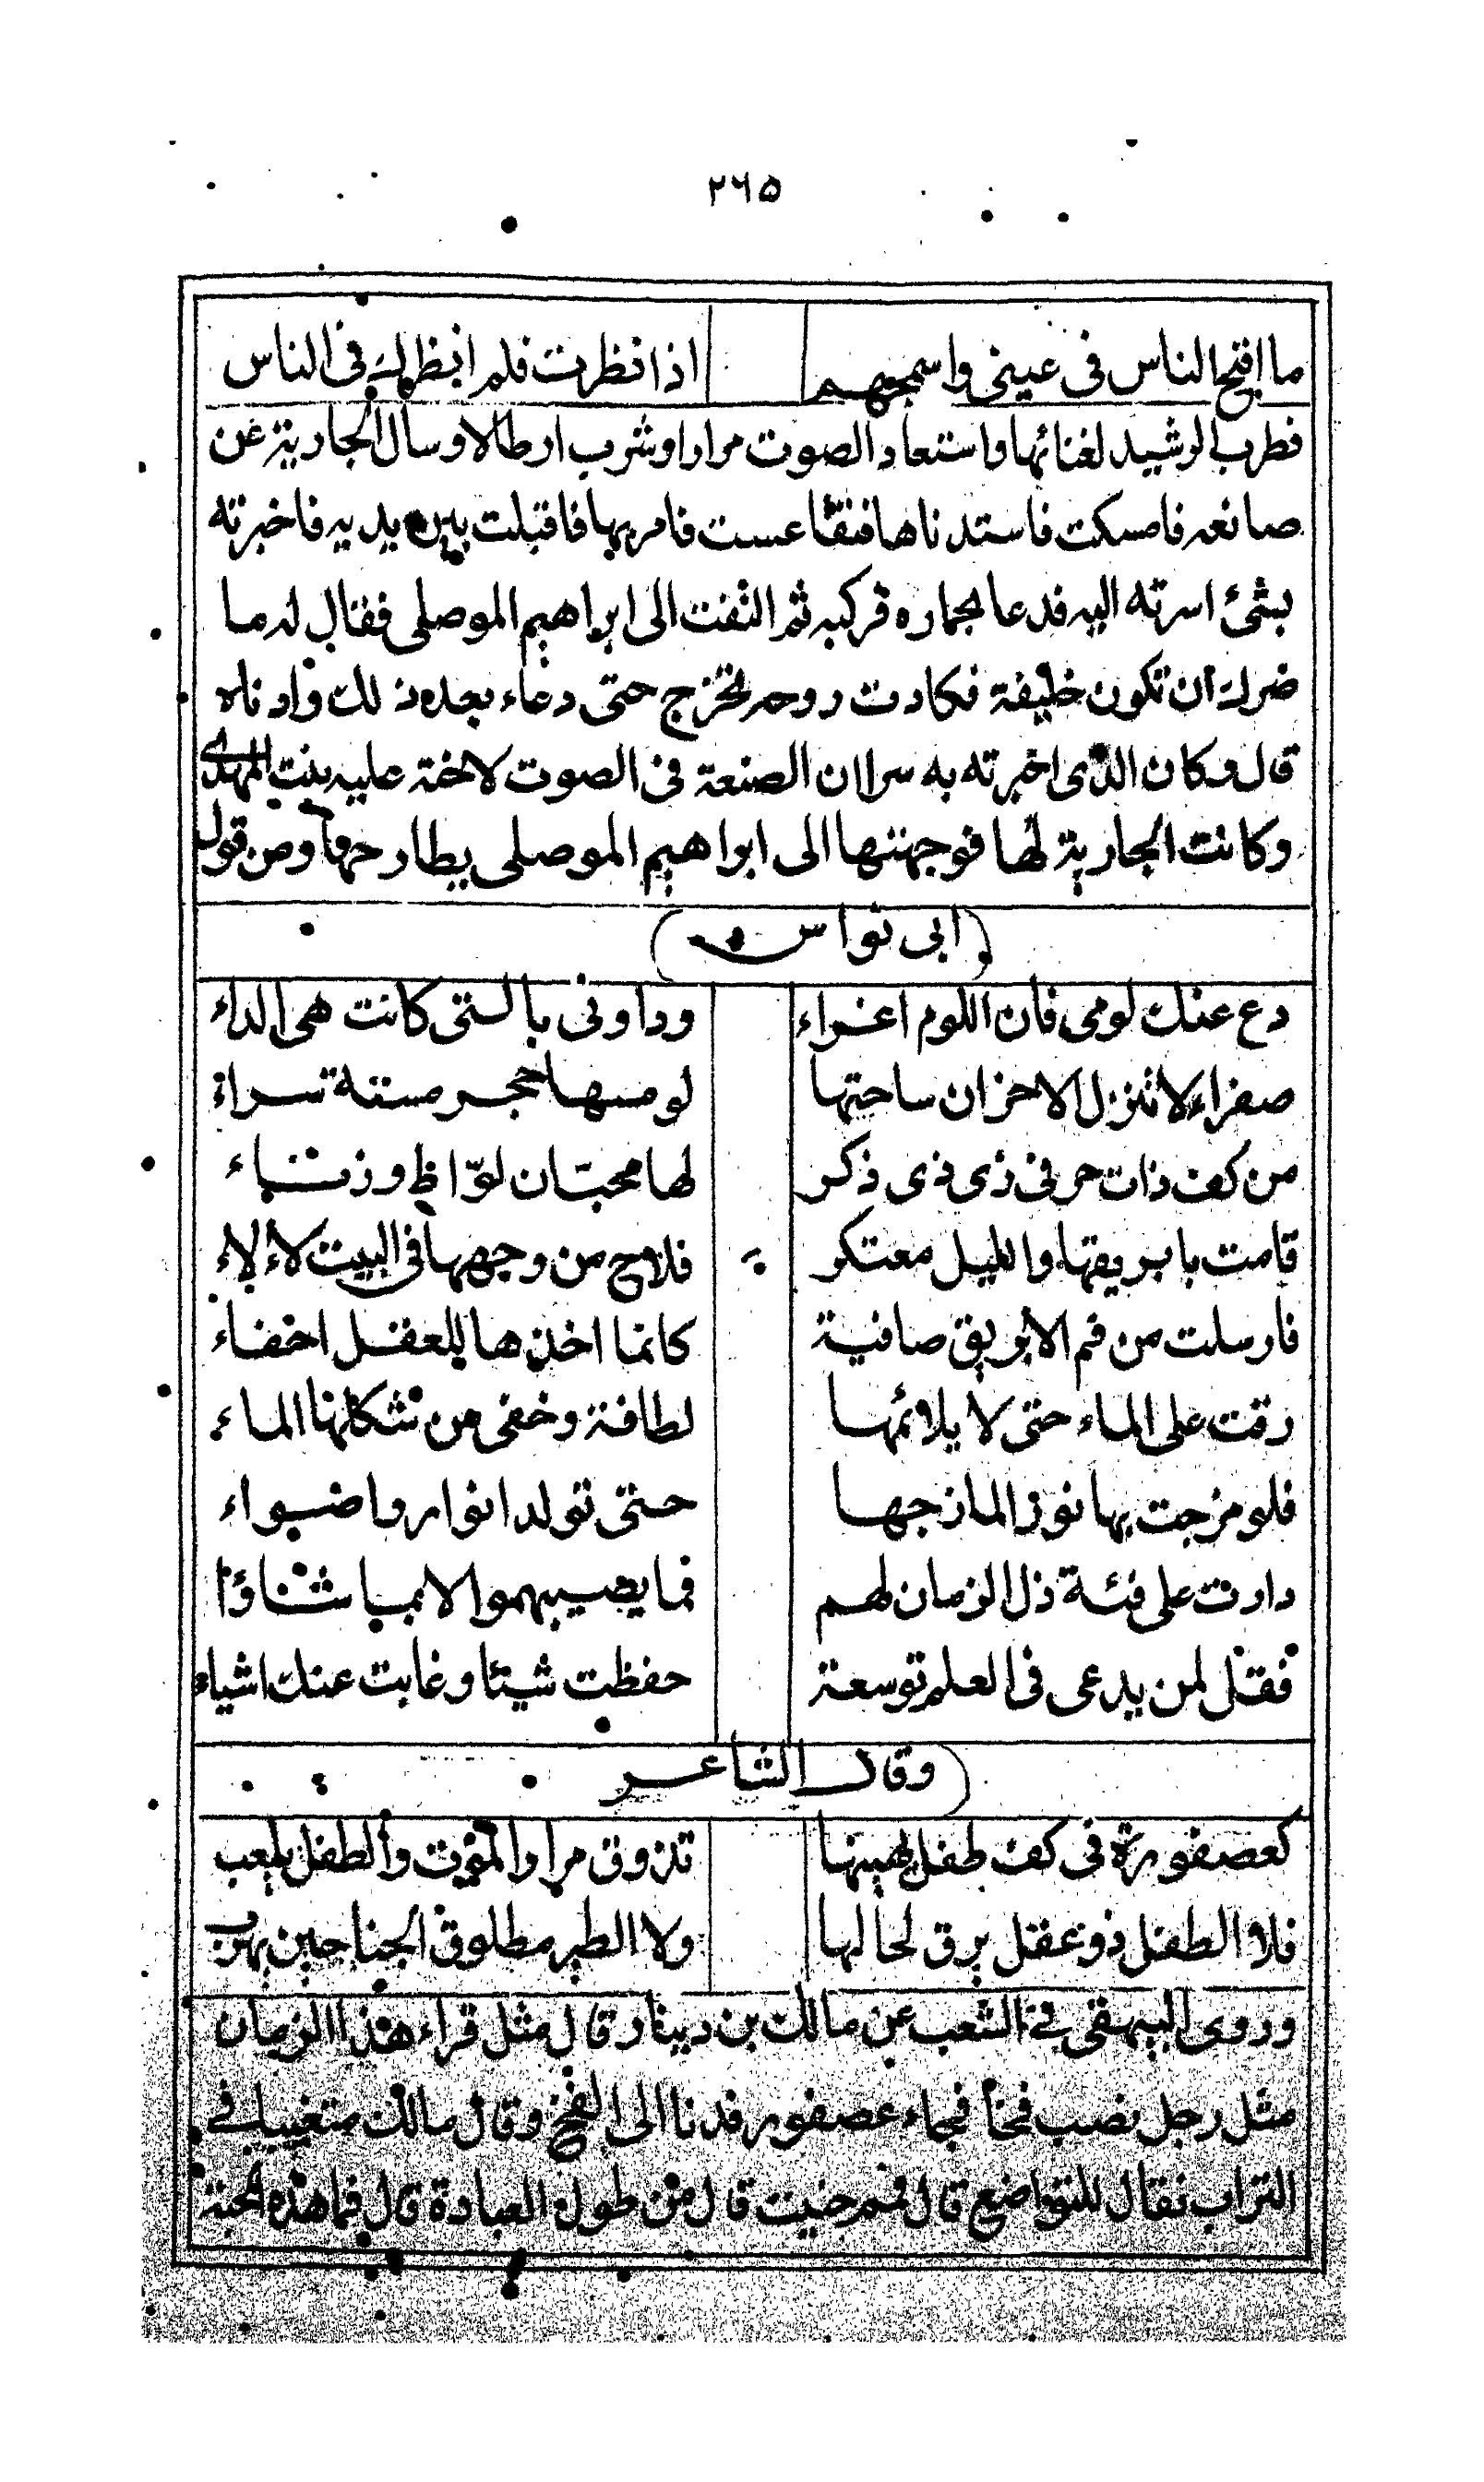 ٢٦٥
ما اقبح الناس فى عينى واسمجهم اذا نظرت فلم ابظرك فى الناس
فطرب الرشيد لغنائها واستعاد الصوت مرارا وشرب ارطالا وسال الجارية عن
صانعه فامسكت فاستدناها فتقاعست فامر بها فاقبلت بين يديه فاخبرته
بشئ اسرته اليه فدعا بحماره فركبه ثم التفت الى ابراهيم الموصلى فقال له ما
ضرك ان تكون خليفة فكادت روحه تخرج حتى دعاء بعده ذلك وادناه
قال وكان الذى اخبرته به سرا ان الصنعة فى الصوت لاخته عليه بنت المهدى
وكانت الجارية لها فوجهتها الى ابراهيم الموصلى يطارحها ومن قول
(ابى نواس)
دع عنك لومى فان اللوم اغراء وداونى بالتى كانت هى الداء
صفراء لا تنزل الاحزان ساحتها لو مسها حجر مسته سراة
من كف ذات حر فى زى ذى ذكر لها محبّان لوّاظ وزناء
قامت بابريقها والليل معتكر فلاح من وجهها فى البيت لاء لاء
فارسلت من فم الابريق صافية كانما اخذها للعقل اخفاء
رقت على الماء حتى لا يلائمها لطافة وخفى من شكلها الماء
فلو مزجت بها نورا لمازجها حتى تولد انوار واضواء
دارت على فئة ذل الزمان لهم فما يصيبهموا الا بما شاؤا
فقل لمن يدعى فى العلم توسعة حفظت شيئا وغابت عنك اشياء
(وقال الشاعر
كعصفورة فى كف طفل يهينها تذوق مرار الموت والطفل يلعب
فلا الطفل ذو عقل يرق لحالها ولا الطير مطلوق الجناحين يهرب
وروى البيهقى فى الشعب عن مالك بن دينار قال مثل قراء هذا الزمان
مثل رجل نصب فخا فجاء عصفور فدنا الى الفخ وقال مالك متغيبا فى
التراب فقال للتواضع قال فمم حنيت قال من طول العبادة قال فما هذه الحبة